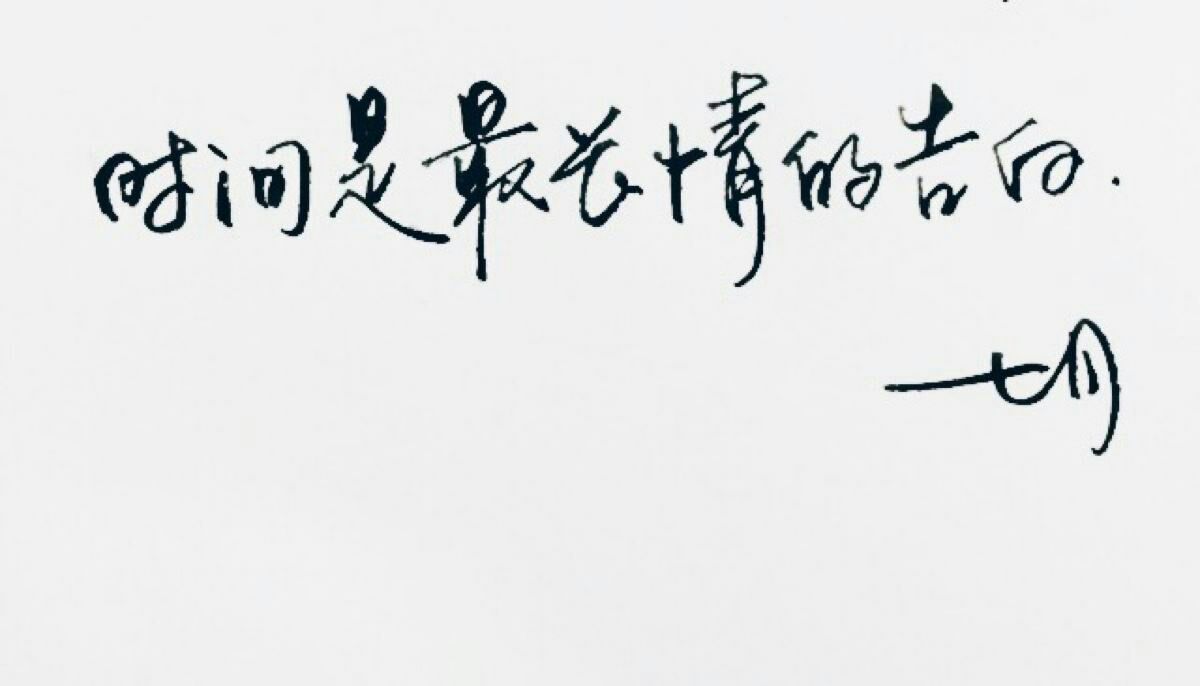 时间是最长情的告白.
七月